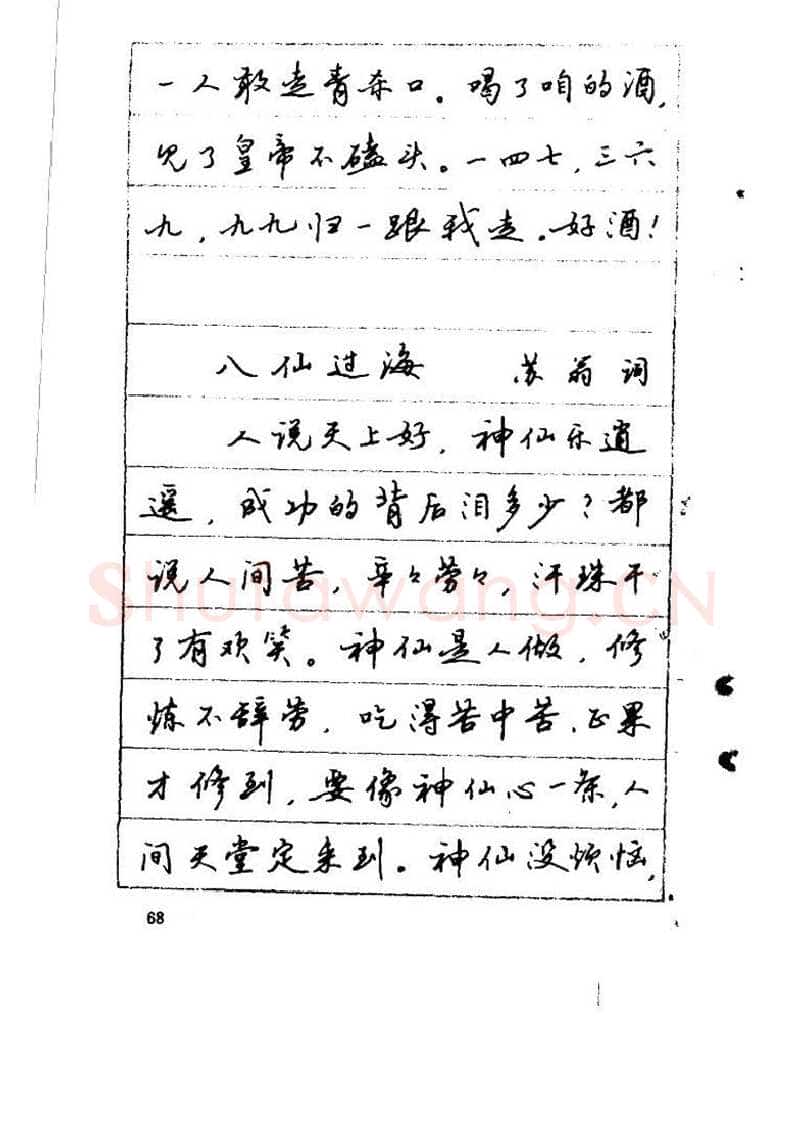 一人敢走青杀口。喝了咱的酒，
见了皇帝不磕头。一四七，三六
九，九九归一跟我走。好酒！
八仙过海 苏翁词
人说天上好，神仙乐逍
遥，成功的背后泪多少？都
说人间苦，辛々劳々，汗珠干
了有欢笑。神仙是人做，修
炼不辞劳，吃得苦中苦，正果
才修到，要像神仙心一条，人
间天堂定来到。神仙没烦恼，
68
Shufawang.CN